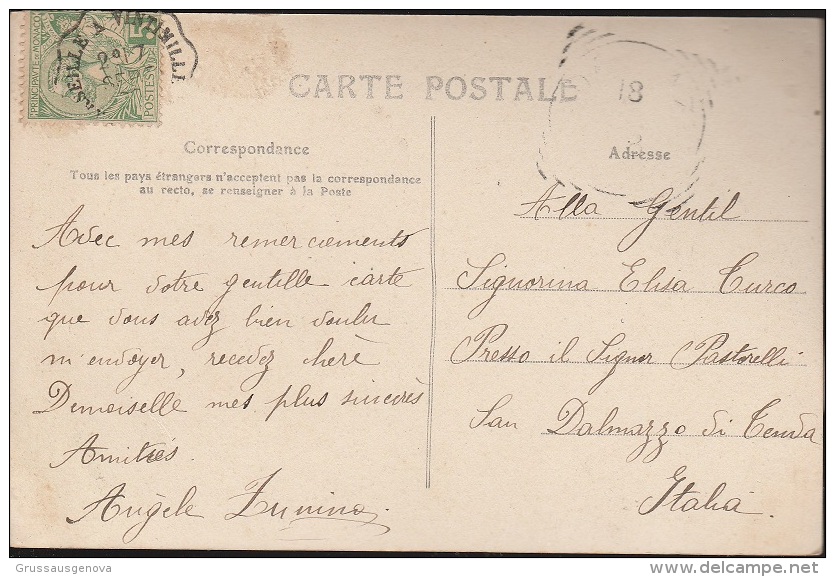 PRINCIPAUTÉ DE MONACO
5
POSTES
MARSEILLE A VINTIMILLE
CARTE POSTALE
18
Correspondance
Tous les pays étrangers n'acceptent pas la correspondance
au recto, se renseigner à la Poste
Avec mes remerciements
pour votre gentille carte
que vous avez bien voulu
m'envoyer, recevez chère
Demoiselle mes plus sincères
Amitiés.
Angèle Zunino
Adresse
Alla Gentil
Signorina Elisa Turco
Presso il Signor Pastorelli
San Dalmazzo di Tenda
Italia.
Grussausgenova
delcampe.net